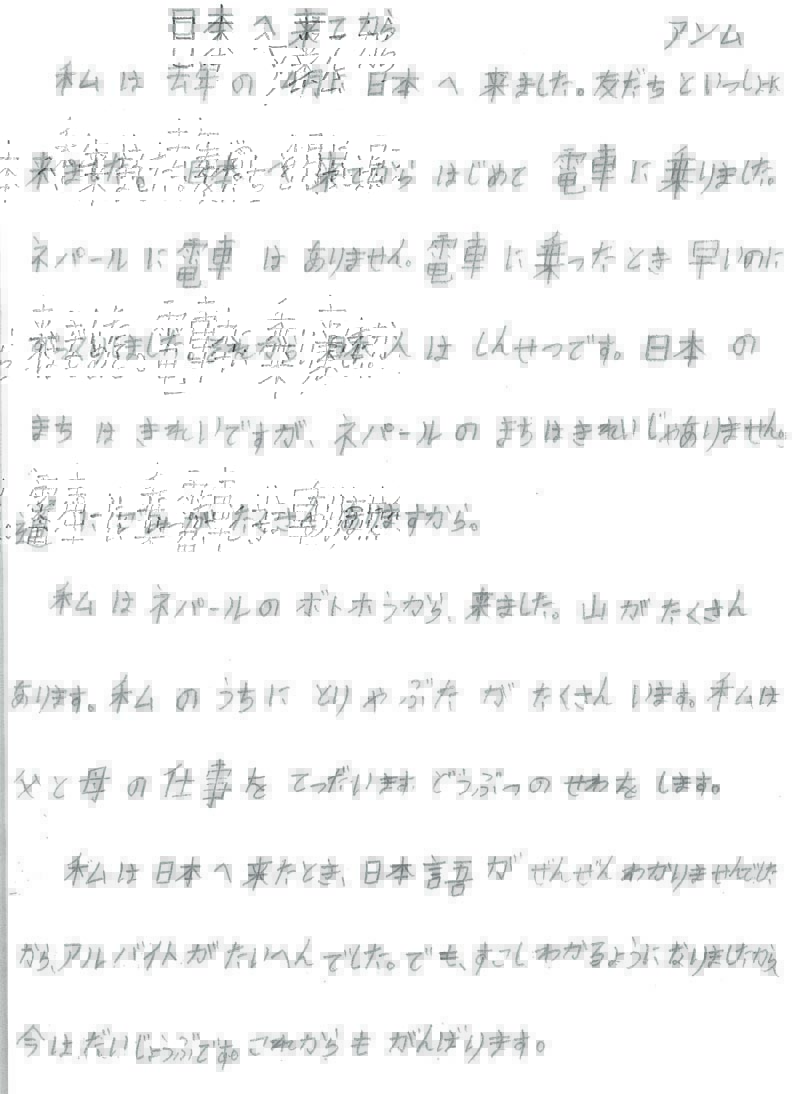 日本へ来てから アンム
私は去年の 日本へ来ました。友だちといっしょに
来ました。日本へ来てからはじめて電車に乗りました。
ネパールに電車はありません。電車に乗ったとき早いのに
日本人はしんせつです。日本の
まちはきれいですが、ネパールのまちはきれいじゃありません。
道に たくさん ありますから。
私はネパールのボトホうから、来ました。山がたくさん
あります。私のうちにとりやぶたがたくさんいます。私は
父と母の仕事をてつだいますどうぶつのせわをします。
私は日本へ来たとき、日本語がぜんぜんわかりませんでした
から、アルバイトがたいへんでした。でも、すこしわかるようになりましたから
今はだいじょうぶです。これからもがんばります。